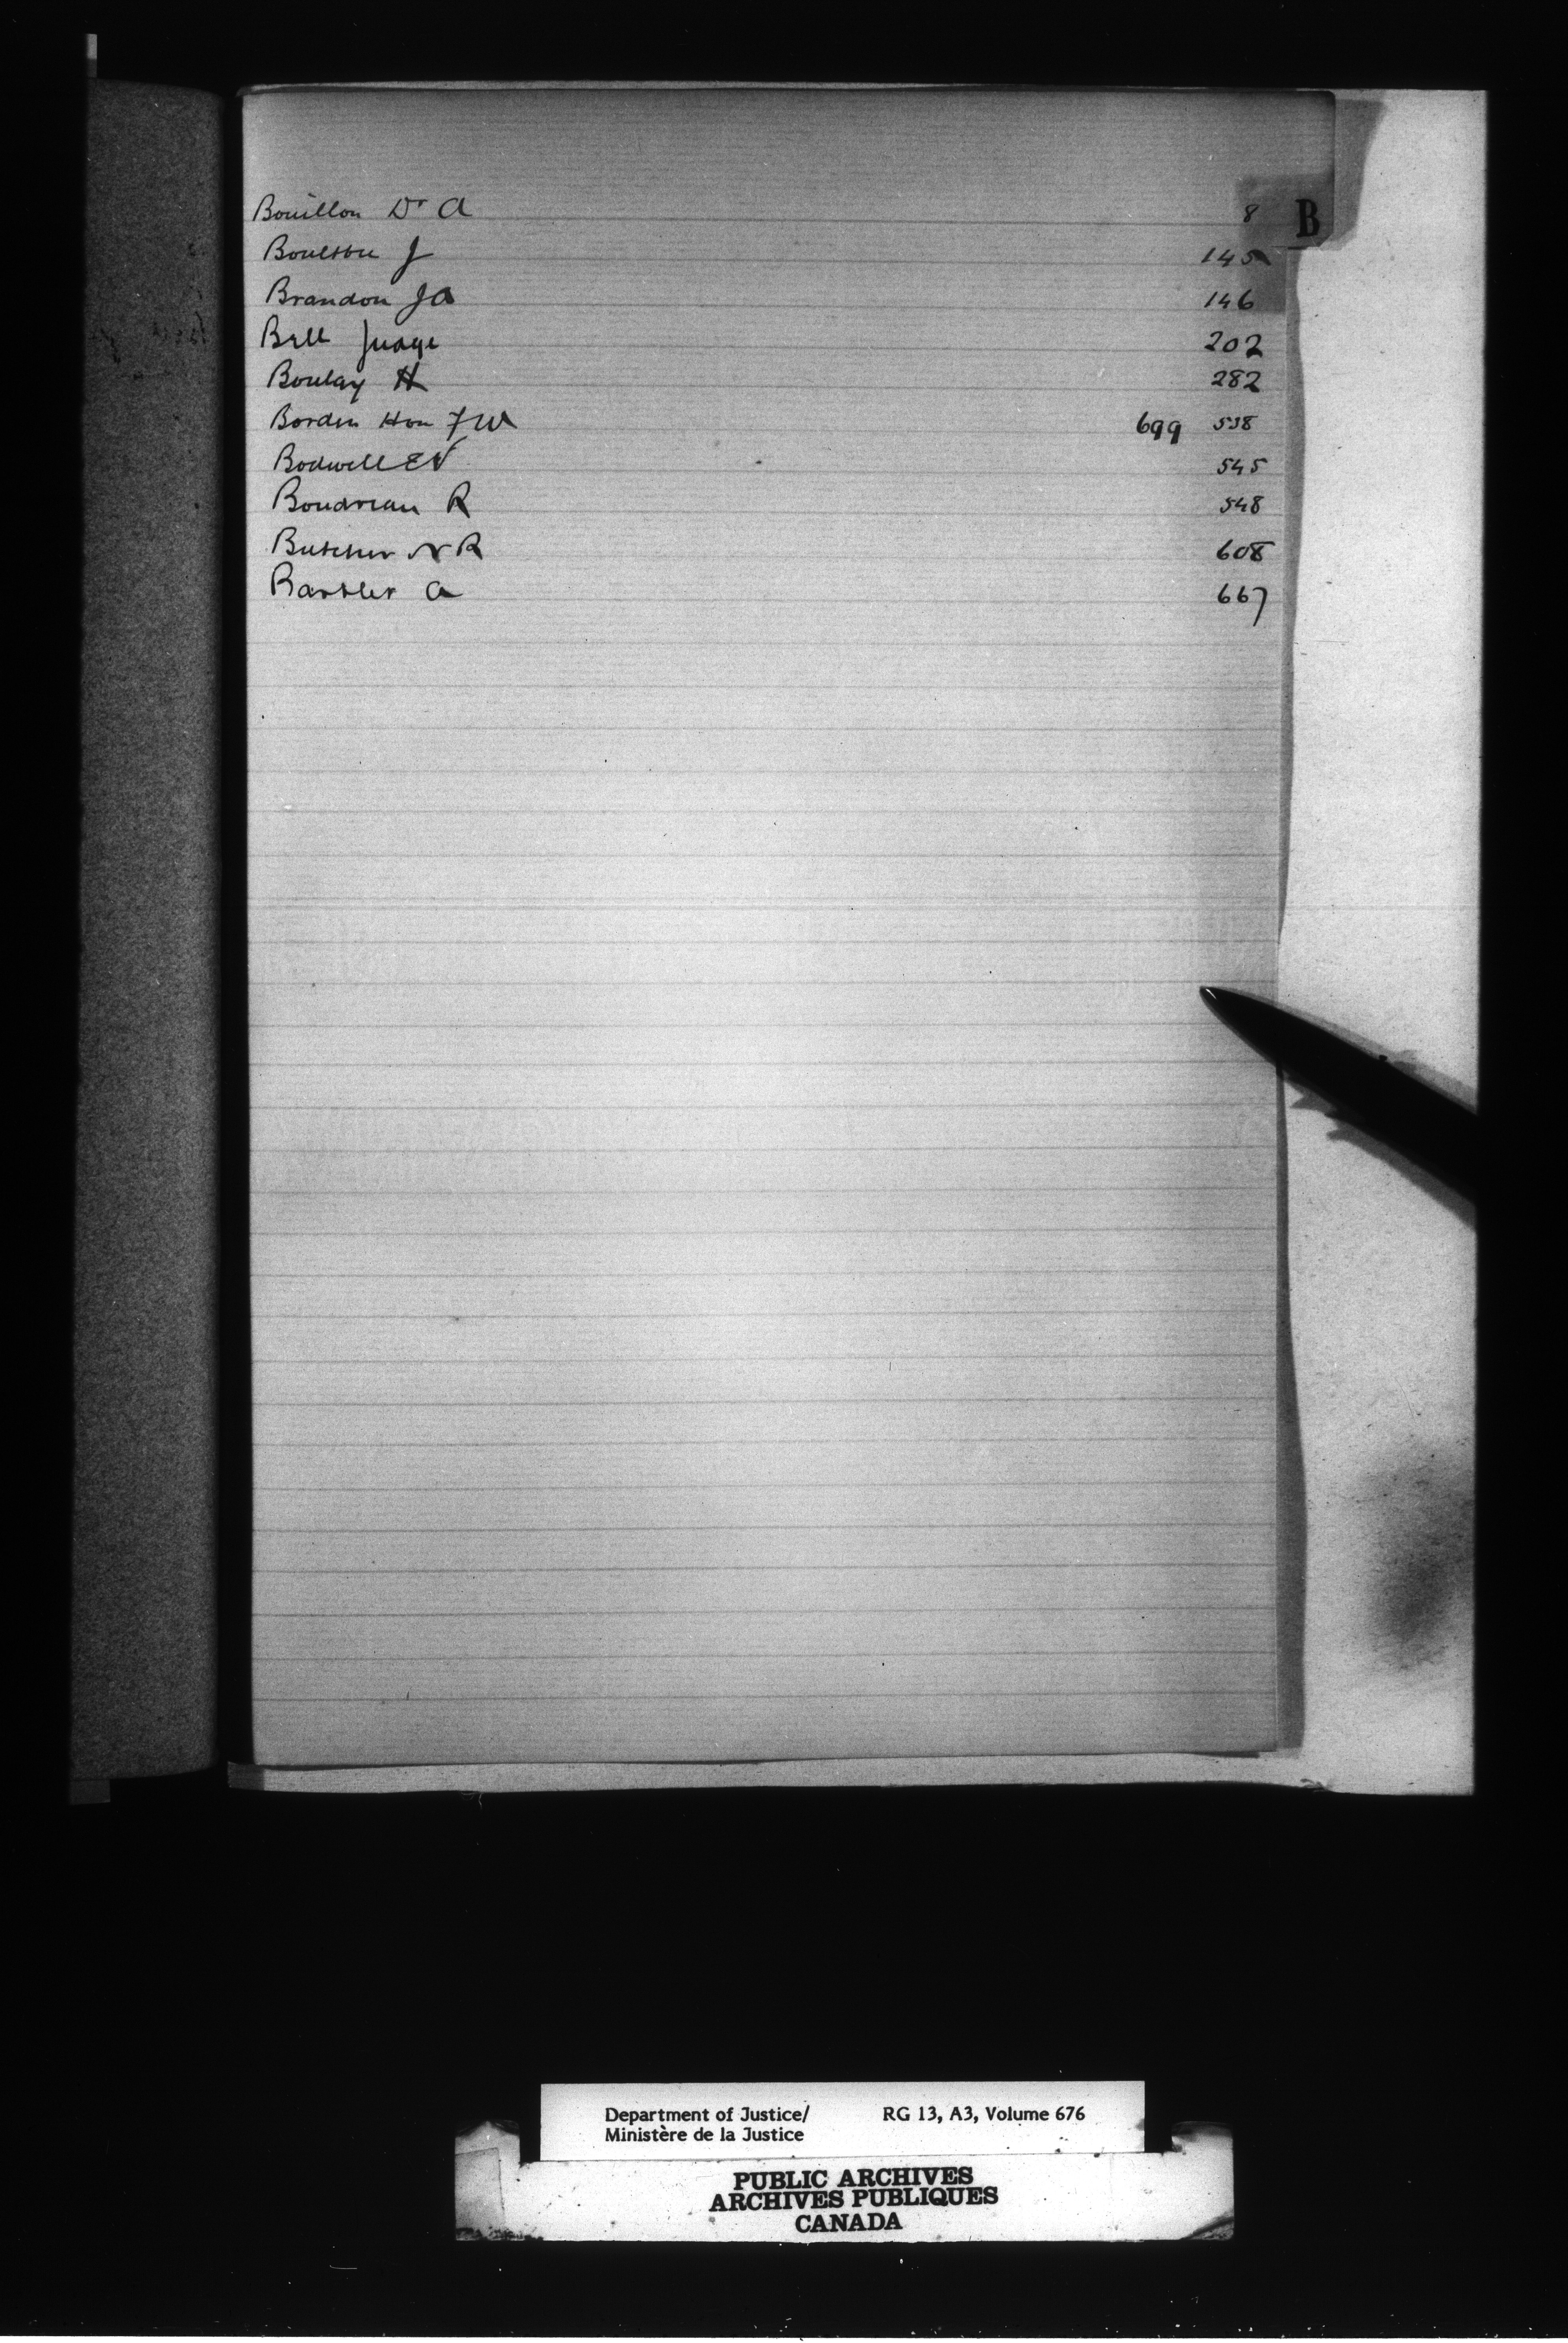 B
Bouillon Dr A 8
Boulton J 145
Brandon J A 146
Bell Judge 202
Boulay H 282
Borden Hon F W 699 538
Bodwell E V 545
Boudreau R 548
Butcher N R 608
Bartlet A 667
Department of Justice/ RG 13, A3, Volume 676
Ministère de la Justice
PUBLIC ARCHIVES
ARCHIVES PUBLIQUES
CANADA